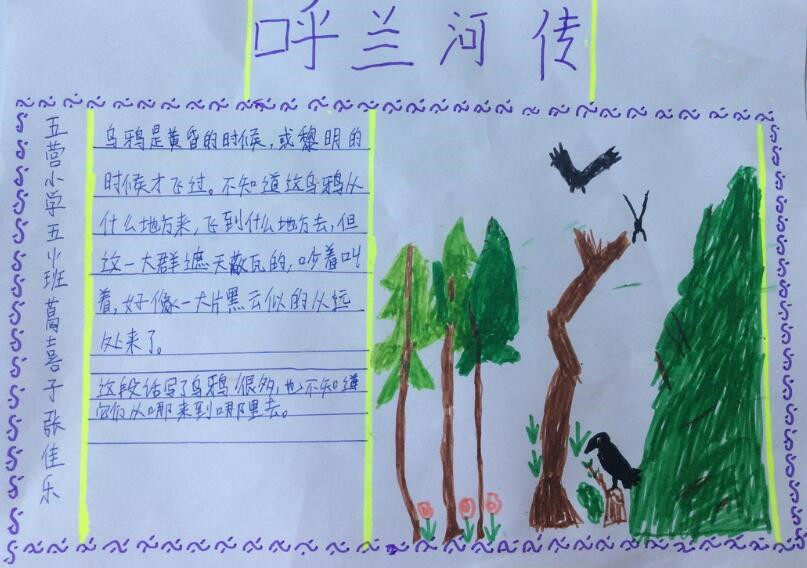 呼兰河传
五营小学五少班葛喜子张佳乐
乌鸦是黄昏的时候，或黎明的
时候才飞过。不知道这乌鸦从
什么地方来，飞到什么地方去，但
这一大群遮天蔽瓦的，吵着叫
着，好像一大片黑云似的从远
处来了。
这段话写了乌鸦很多，也不知道
它们从哪来到哪里去。